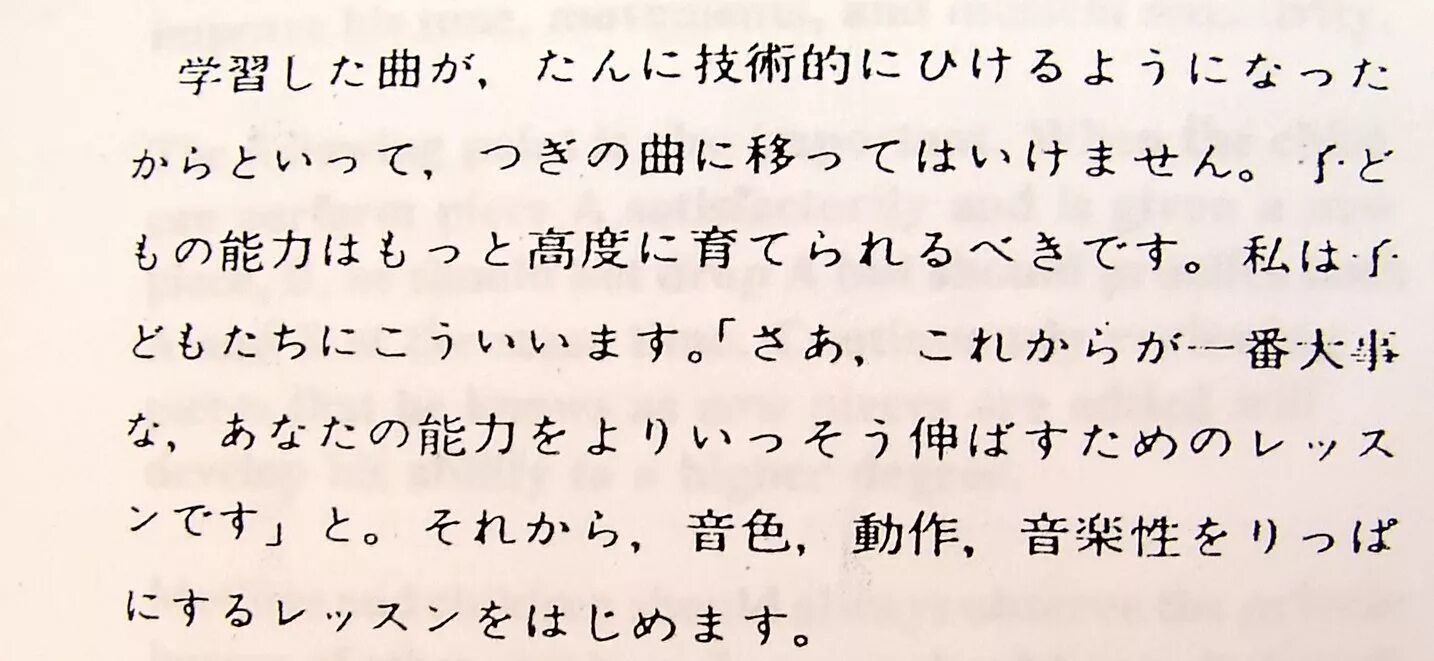 学習した曲が，たんに技術的にひけるようになった
からといって，つぎの曲に移ってはいけません。子ど
もの能力はもっと高度に育てられるべきです。私は子
どもたちにこういいます。「さあ，これからが一番大事
な，あなたの能力をよりいっそう伸ばすためのレッス
ンです」と。それから，音色，動作，音楽性をりっぱ
にするレッスンをはじめます。